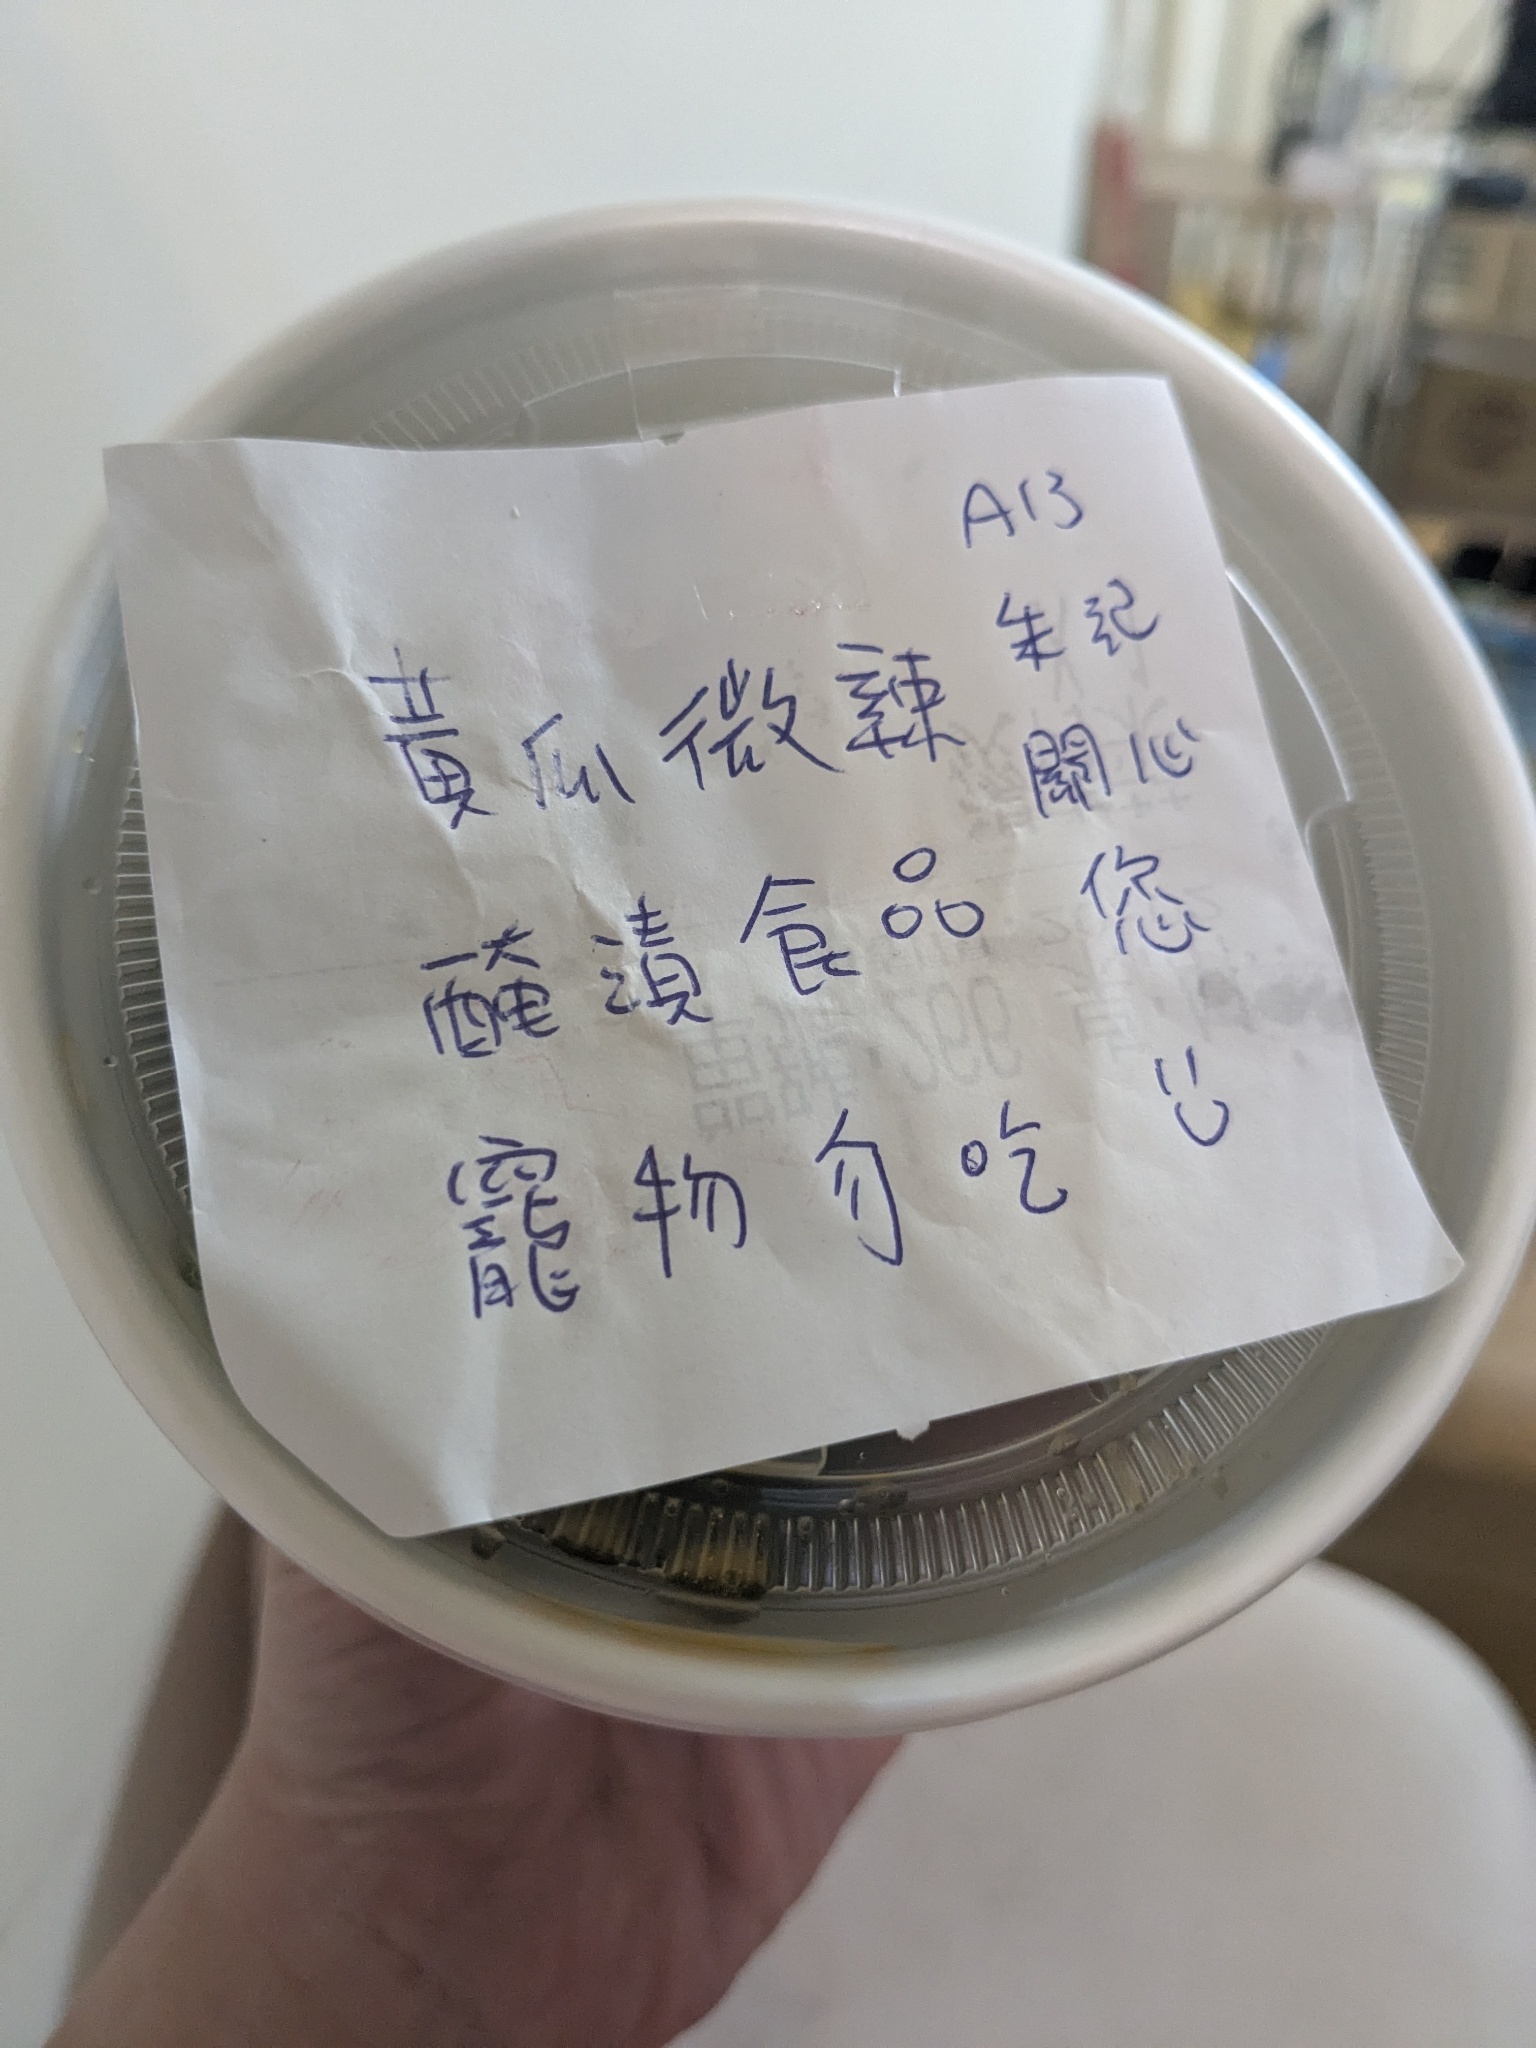 A13
朱記
關心
您
黃瓜微辣
醃漬食品
寵物勿吃